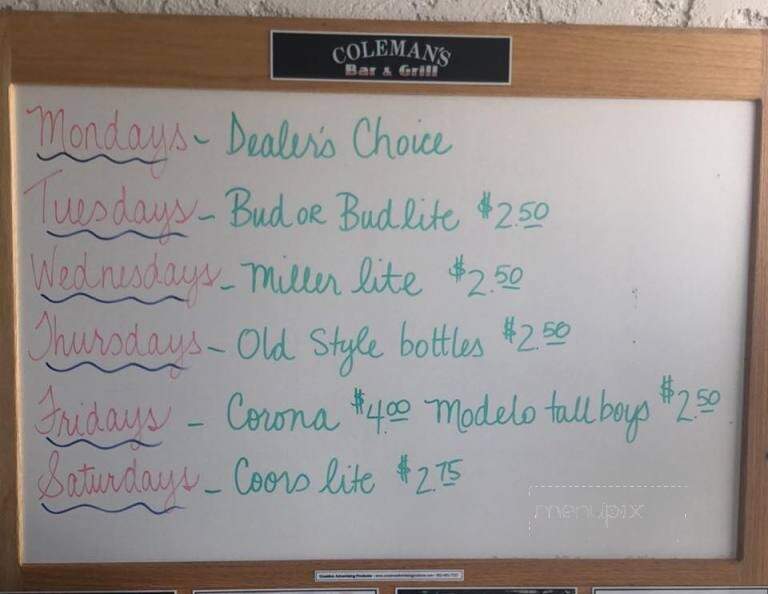 COLEMAN'S
Bar & Grill
Mondays - Dealer's Choice
Tuesdays - Bud or Bud lite $2.50
Wednesdays - Miller lite $2.50
Thursdays - Old Style bottles $2.50
Fridays - Corona $4.00 Modelo tall boys $2.50
Saturdays - Coors lite $2.75
menupix